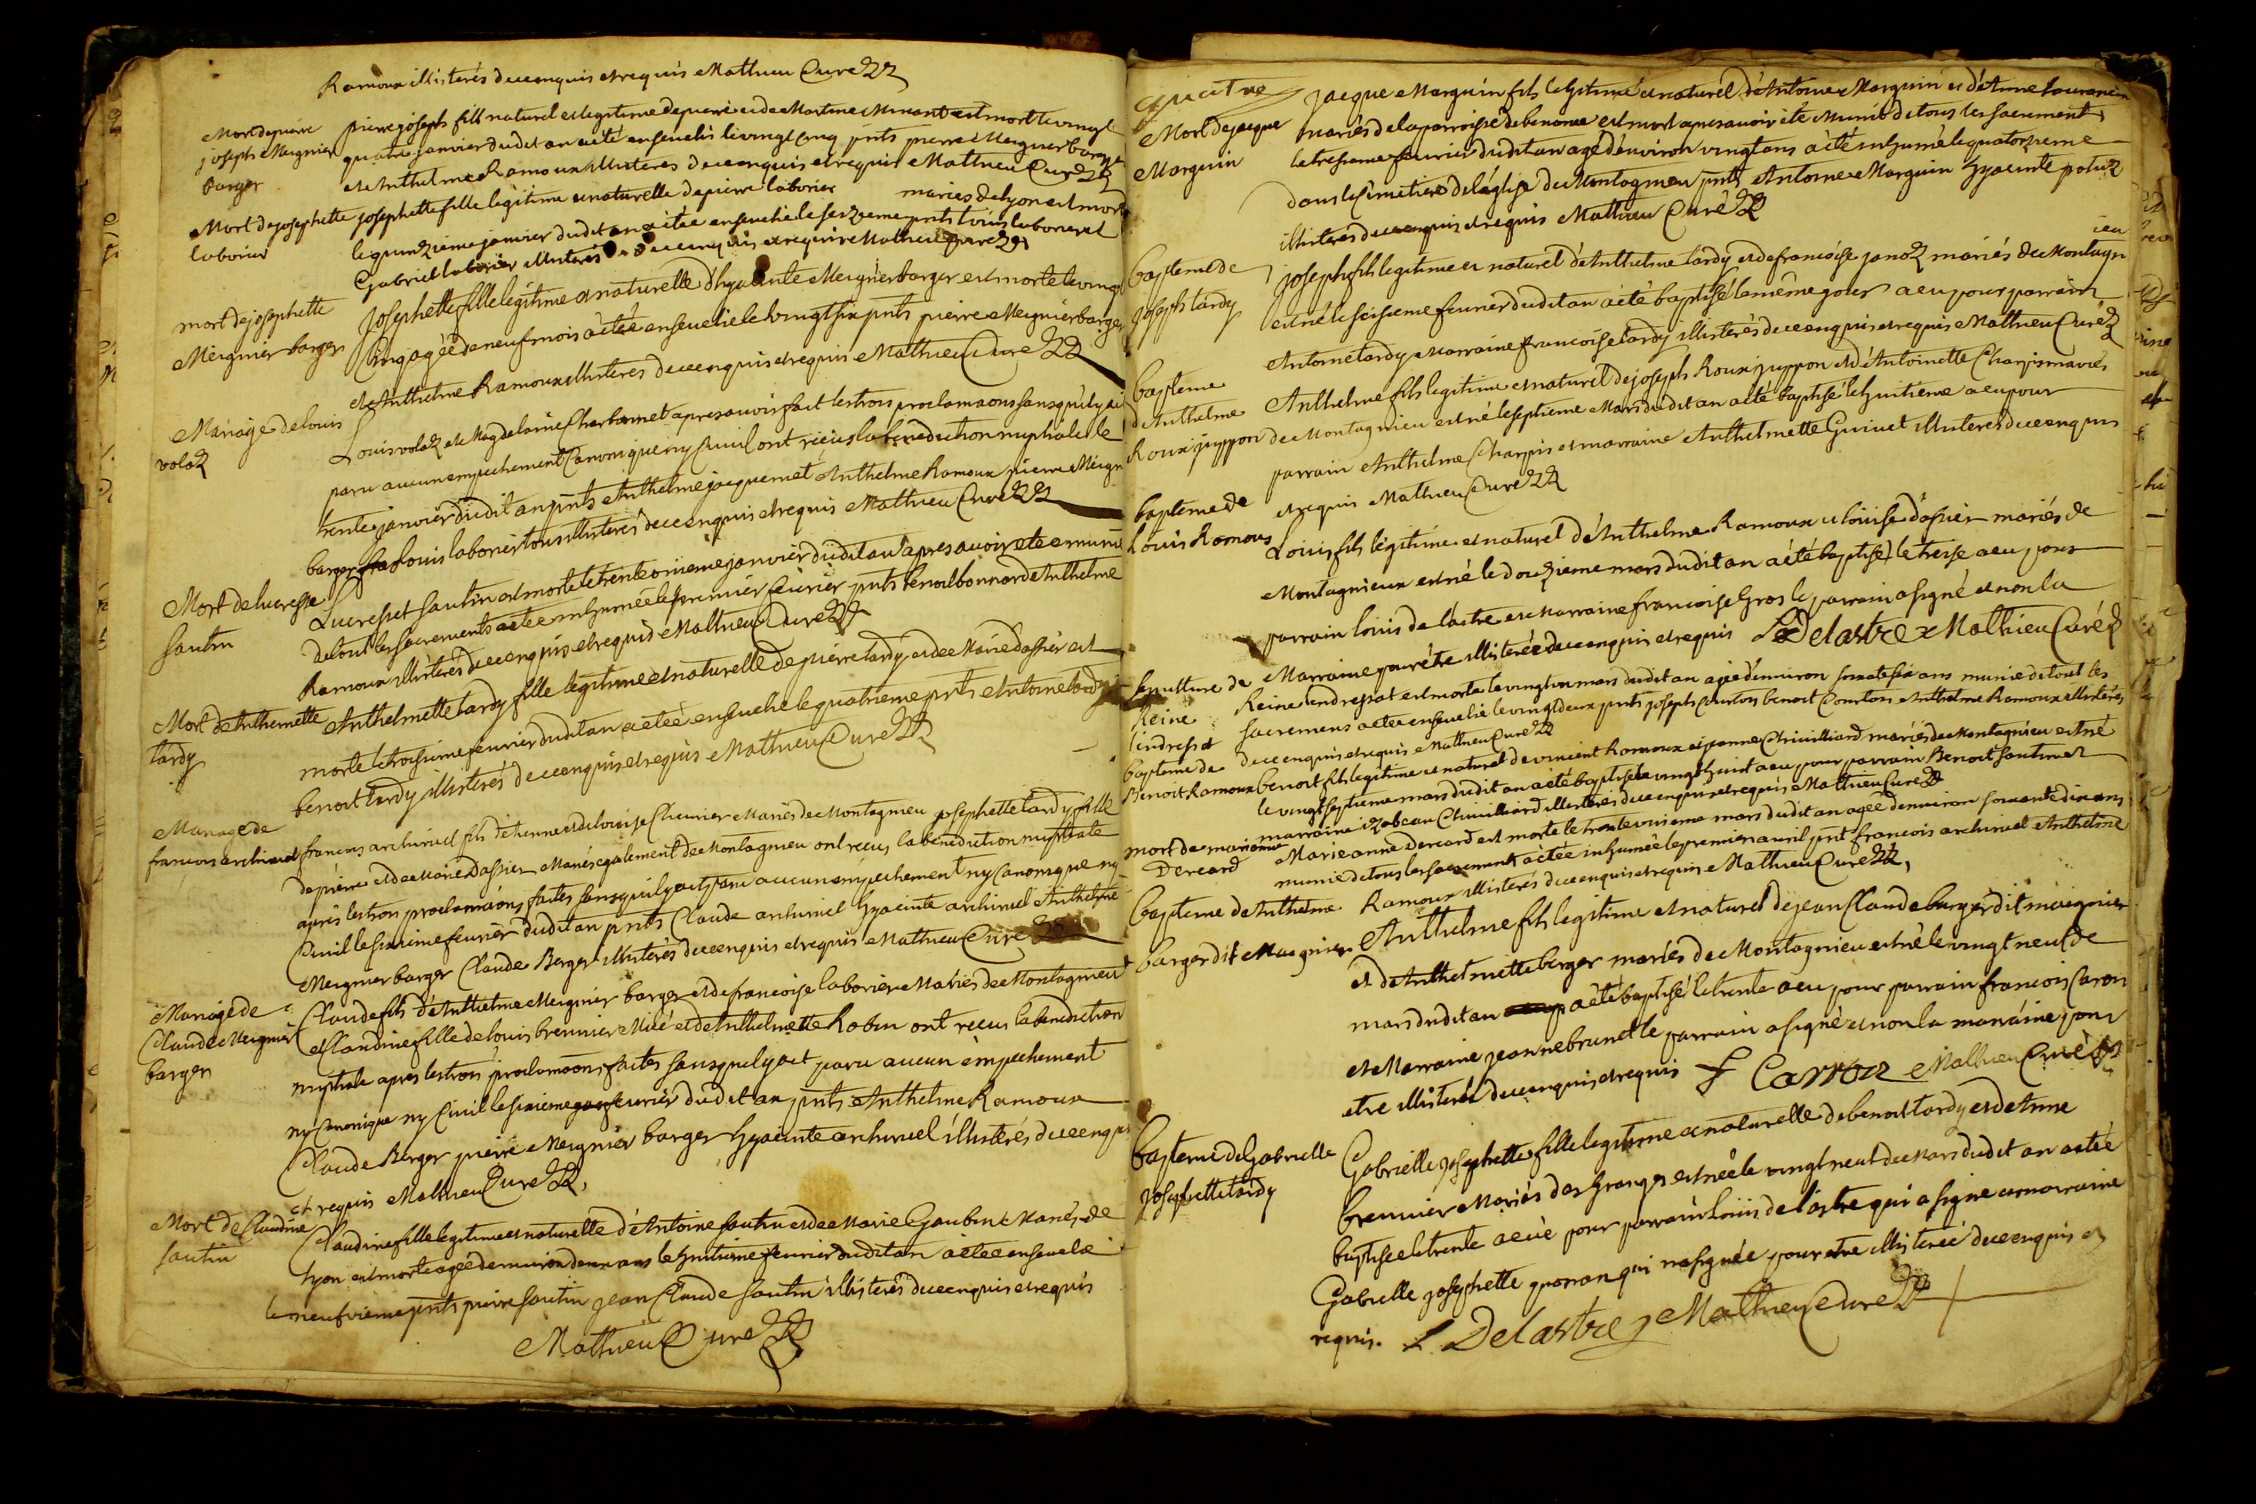 Ramoux illisterés de ce enquis et requis Mathieu Curé
Mort de pierre
joseph Meignier
barger
pierre joseph fill naturel et legitime de pierre et de Martine est mort le vingt
quatre janvier dudit an a été enseuelis le vingt cinq pnts pierre Meignier barger
et Anthelme Ramoux illisteres de ce enquis et requis Mathieu Curé
Mort de josephette
laborier
josephette fille légitime et naturelle de pierre laborier mariés de lyon est morte
le quinzième janvier dudit an a étée enseuelie le seizieme pnts louis laborier et
Gabriel laborier illisterés de ce enquis et requis Mathieu Curé
mort de josephette
Meignier barger
Josephette fille légitime et naturelle d'hyacinte Meignier barger est morte le vingt
Cinq agée de neuf mois a étée enseuelie le vingt six pnts pierre Meignier barger
et Anthelme Ramoux illisteres de ce enquis et requis Mathieu Curé
Mariage de louis
voloz
Louis voloz et Magdelaine Charbonnet apres avoir fait les trois proclamaons sans qu'il y ait
paru aucun empechement Canonique ny Ciuil ont reçus la benediction nuptiale le
trente janvier dudit an pnts Anthelme jacquemet Anthelme Ramoux pierre Meignier
barger louis laborier tous illisterés de ce enquis et requis Mathieu Curé
Mort de lucresse
Santin
Lucresse Santin est morte le trente onieme janvier dudit an apres avoir ete munie
de tout les sacrements a étée inhumée le premier feurier pnts benoit bonnard Anthelme
Ramoux illisterés de ce enquis et requis Mathieu Curé
Mort de Anthemette
tardy
Anthelmette tardy fille legitime et naturelle de pierre tardy et de Marie dassier est
morte le troisieme feurier dudit an a étée enseuelie le quatrieme pnts Antoine tardy
benoit tardy illisterés de ce enquis et requis Mathieu Curé
Mariage de
francois archiruel
francois archiruel fils d'etienne et de louise Cheurier Mariés de Montagnieu josephette tardy fille
de pierre et de Marie Dassier Mariés egalement de Montagnieu ont reçus la benediction nuptiale
après les trois proclamaons faites sans qu'il y ait paru aucun empechement ny Canonique ny
Ciuil le sixieme feurier dudit an pnts Claude archiruel hyacinte archiruel Anthelme
Meignier barger Claude Berger illisterés de ce enquis et requis Mathieu Curé
Mariage de
Claude Meignier
barger
Claude fils d'Anthelme Meignier barger et de francoise laborier Mariés de Montagnieu
et Claudine fille de louis brennier et de Anthelmette Robin ont reçus la benediction
nuptiale apres les trois proclamaons faites sans qu'il y ait paru aucun empechement
ny Canonique ny Ciuil le sixieme feurier dudit an pnts Anthelme Ramoux
Claude Berger pierre Meignier barger hyacinte archiruel illisterés de ce enquis
et requis Mathieu Curé
Mort de Claudine
santin
Claudine fille legitime et naturelle d'Antoine santin et de Marie Goubin Mariés de
lyon est morte agée d'environ deux ans le huitieme feurier dudit an a étée enseuelie
le neufvieme pnts pierre santin jean Claude santin illisterés de ce enquis et requis
Mathieu Curé
quatre
Mort de jacque
Marguin
Jacque Marguin fils legitime et naturel d'Antoine Marguin et d'Anne
mariés de la parroisse de benonce est mort apres avoir ete Munis de tous les sacrements
le treizieme feurier dudit an agé d'environ vingt ans a été inhumé le quatorzieme
dans le Cimetiere de l'église de Montagnieu pnts Antoine Marguin hyacinte
illisterés de ce enquis et requis Mathieu Curé
bapteme de
joseph tardy
Joseph fils legitime et naturel d'Anthelme tardy et de francoise janoz mariés de Montagnieu
est né le seizieme feurier dudit an a été baptisé le même jour a eu pour parrain
Antoine tardy Marraine francoise tardy illisterés de ce enquis et requis Mathieu Curé
bapteme
d'Anthelme
Roux juppon
Anthelme fils legitime et naturel de joseph Roux juppon et d'Antoinette Charpis mariés
de Montagnieu est né le septieme Mars dudit an a été baptisé le huitieme a eu pour
parrain Anthelme Charpis et marraine Anthelmette Guinet illisteres de ce enquis
et requis Mathieu Curé
bapteme de
Louis Ramoux
Louis fils légitime et naturel d'Anthelme Ramoux et louise dassier mariés de
Montagnieux est né le douzieme mars dudit an a été baptisé le treize a eu pour
parrain louis de lastre et Marraine francoise Gros le parrain a signé et non la
Marraine pour etre illisterée de ce enquis et requis L Delastre Mathieu Curé
sepulture de
Reine
lendresset
Reine lendresset est morte le vingt un mars dudit an agée d'environ soixante six ans munie de tout les
sacremens a étée enseuelie le vingt deux pnts joseph Courtois benoit Courtois Anthelme Ramoux illisterés
de ce enquis et requis Mathieu Curé
bapteme de
Benoit Ramoux
benoit fils legitime et naturel de vincent Ramoux et jeanne Chuilliard mariés de Montagnieu est né
le vingt septieme mars dudit an a été baptisé le vingt huit a eu pour parrain Benoit Santin et
marraine izabeau Chuilliard illisterés de ce enquis et requis Mathieu Curé
mort de marianne
Dereard
Marie anne Dereard est morte le trente unieme mars dudit an agée d'environ soixante dix ans
munie de tous les sacrements a étée inhumée le premier auril pnts francois archiruel Anthelme
Ramoux illisterés de ce enquis et requis Mathieu Curé
bapteme d'Anthelme
barger dit Meignier
Anthelme fils legitime et naturel de jean Claude barger dit meignier
et d'Anthelmette berger mariés de Montagnieu est né le vingt neuf de
mars dudit an a été baptisé le trente a eu pour parrain francois Caron
et Marraine jeanne brunet le parrain a signé et non la marraine pour
etre illisterée de ce enquis et requis f Carron Mathieu Curé
bapteme de Gabrielle
josephette tardy
Gabrielle josephette fille legitime et naturelle de benoit tardy et d'Anne
brennier Mariés des Granges est née le vingt neuf de Mars dudit an a étée
baptisée le trente a eüe pour parrain louis de lastre qui a signé et marraine
Gabrielle josephette qui n'a signée pour etre illisterée de ce enquis et
requis. L Delastre Mathieu Curé